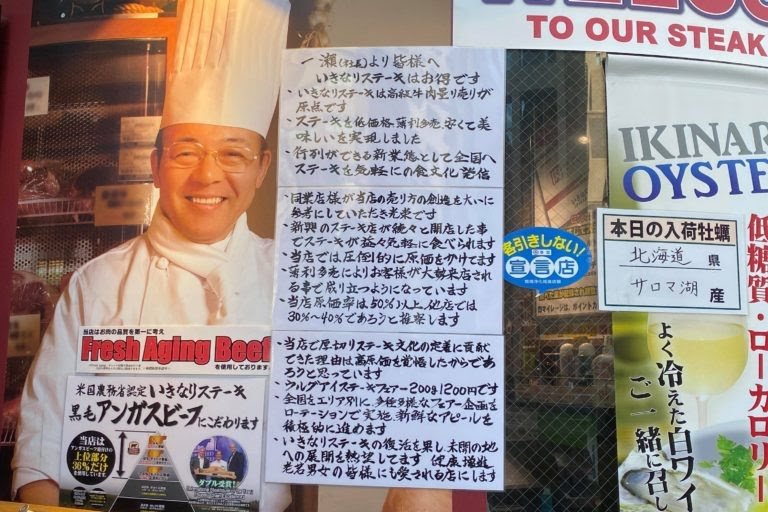 TO OUR STEAK
一瀬(社長)より皆様へ
いきなりステーキはお得です
・いきなりステーキは高級牛肉量り売りが
原点です
・ステーキを低価格、薄利多売、安くて美
味しいを実現しました
・行列ができる新業態として全国へ
ステーキを気軽にの食文化発信
・同業店様が当店の売り方の創造を大いに
参考にしていただき光栄です
・新興のステーキ店が続々と開店した事
でステーキが益々気軽に食べられます
・当店では圧倒的に原価をかけてます
・薄利多売によりお客様が大勢来店され
る事で成り立つようになっています
・当店原価率は50%以上、他店では
30%~40%であろうと推察します
・当店で厚切りステーキ文化の定着に貢献
できた理由は高原価を覚悟したからであ
ろうと思っています
・ウルグアイステーキフェアー200g1200円です
・全国をエリア別に多種多様なフェアー企画を
ローテーションで実施、新鮮なアピールを
積極的に進めます
・いきなりステーキの復活を果し未開の地
への展開を熱望してます 健康増進
老若男女の皆様にも愛される店にします
当店はお肉の品質を第一に考え
Fresh Aging Beef
を使用しております
米国農務省認定 いきなりステーキ
黒毛アンガスビーフにこだわります
当店は
アンガスビーフ格付けの
上位部分
36%だけ
を使用しています。
ダブル受賞!
客引きしない!
宣言店
IKINAR
OYSTE
本日の入荷牡蠣
北海道 県
サロマ湖 産
低糖質・ローカロリー
よく冷えた白ワイ
ご一緒に召し